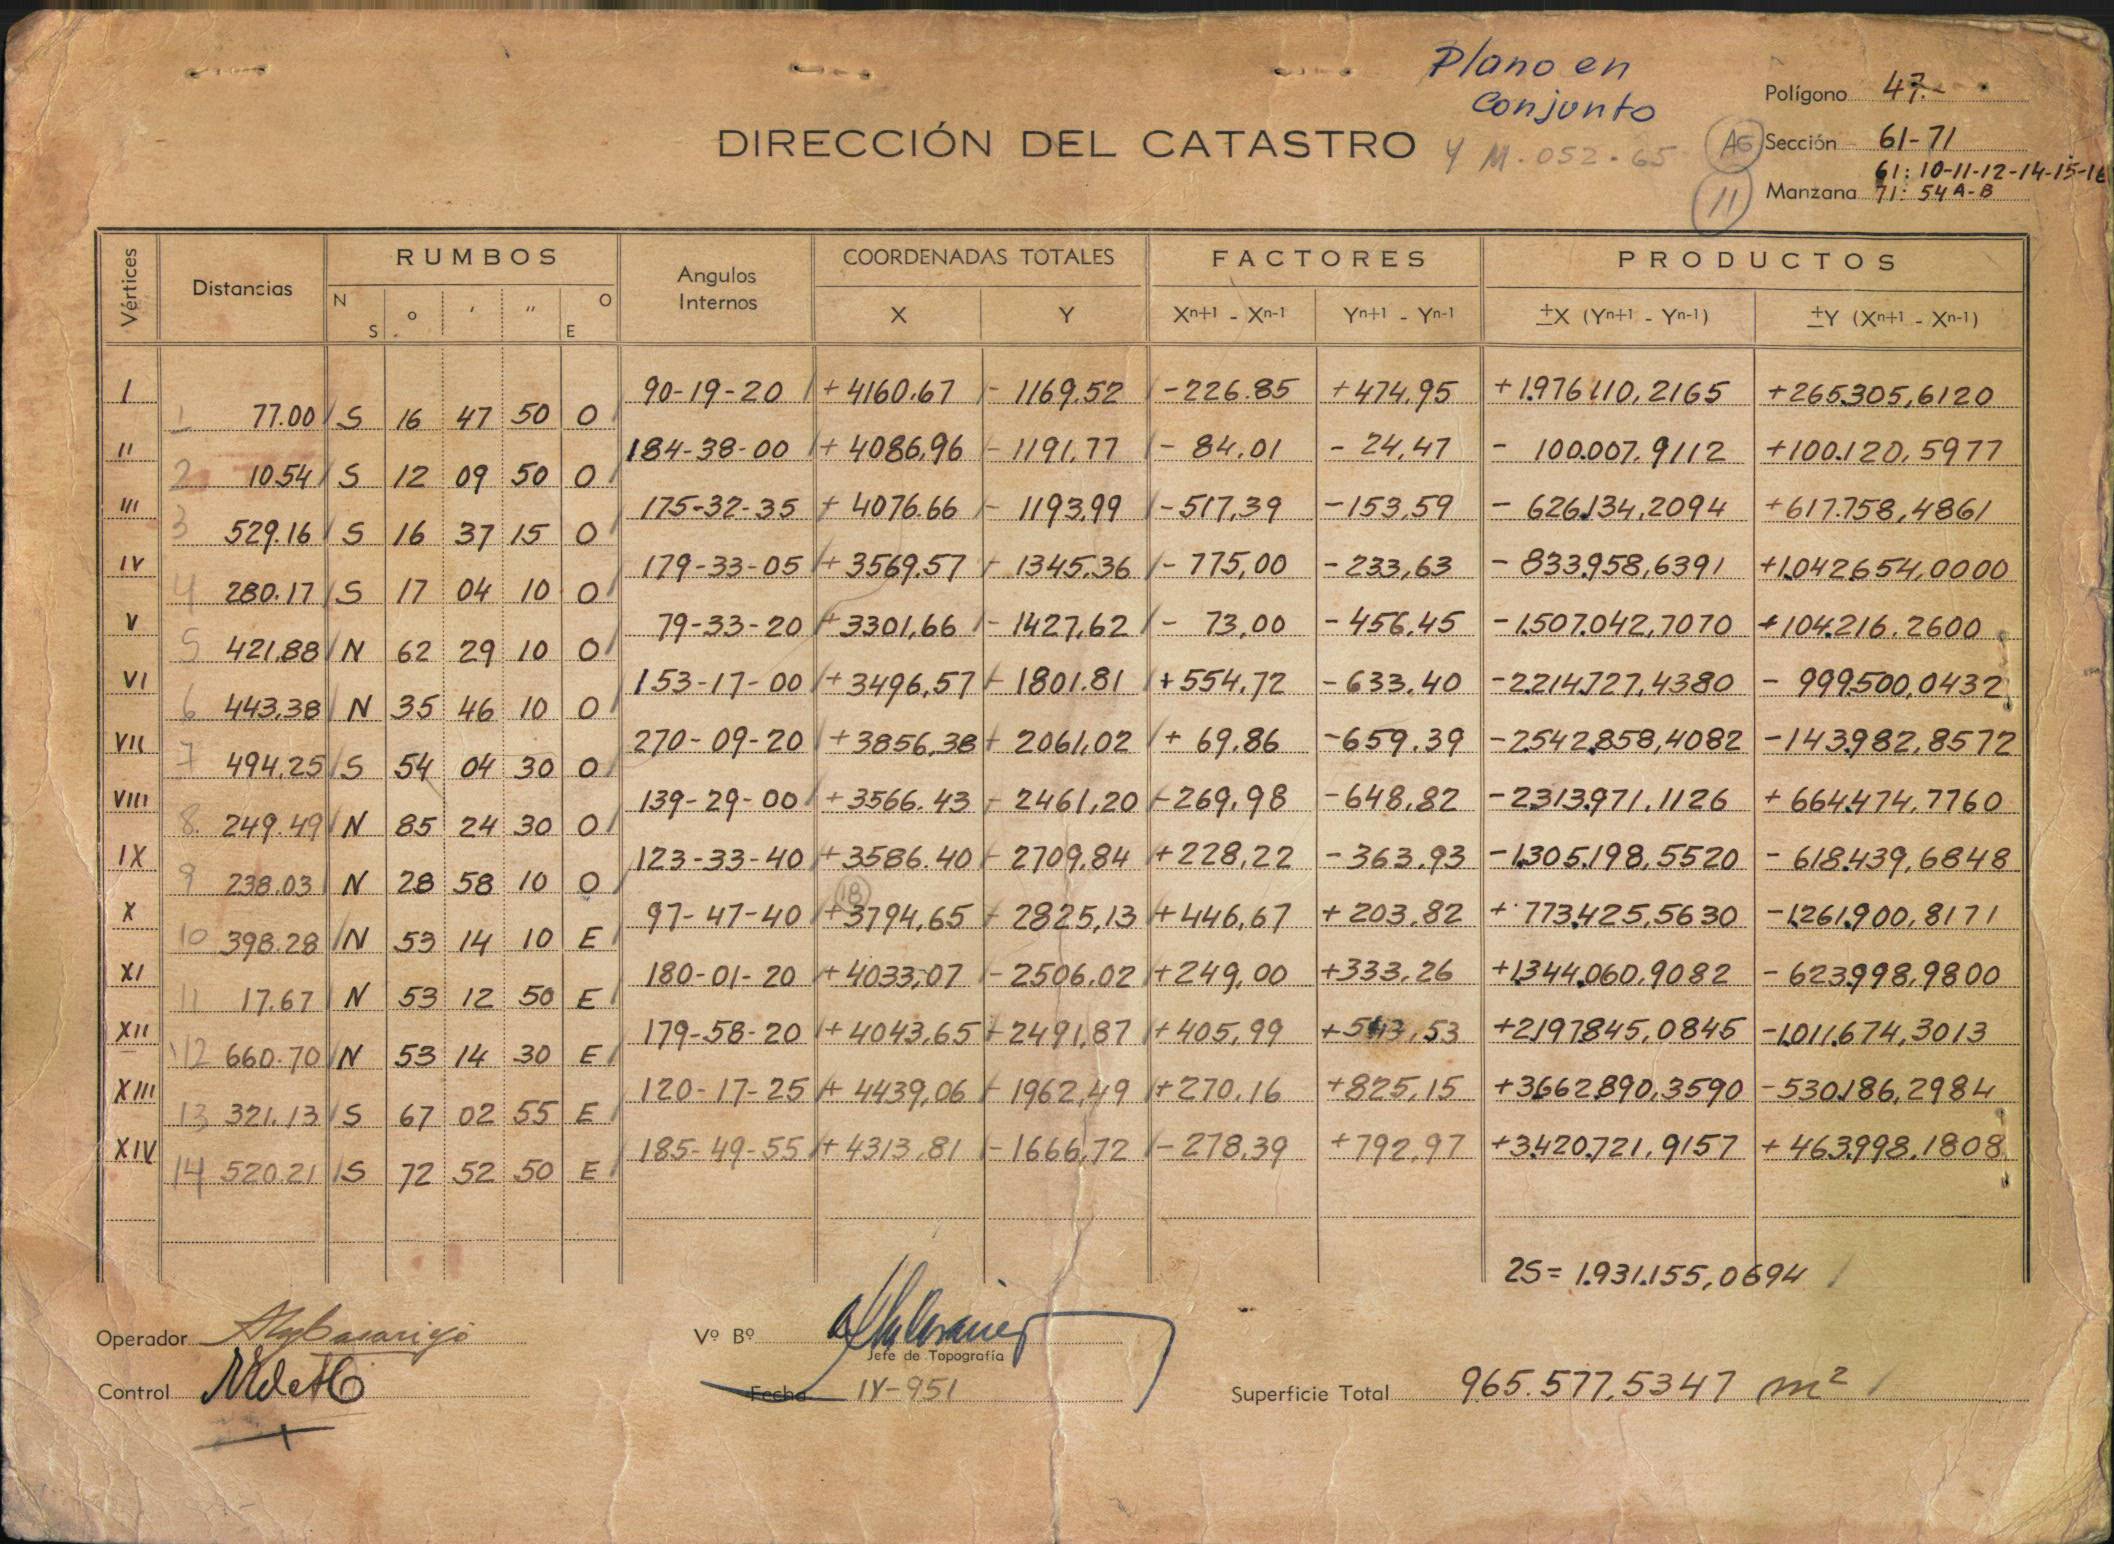 Plano en
Conjunto
Polígono 47.-
DIRECCIÓN DEL CATASTRO
Y M. 052.65
AG
Sección 61-71
61: 10-11-12-14-15-16
11
Manzana 71: 54 A-B
Vértices Distancias RUMBOS Angulos Internos COORDENADAS TOTALES FACTORES PRODUCTOS
N S ° ' " O E X Y Xn+1 - Xn-1 Yn+1 - Yn-1 ±X (Yn+1 - Yn-1) ±Y (Xn+1 - Xn-1)
I 90-19-20 +4160.67 -1169.52 -226.85 +474.95 +1.976110,2165 +265.305,6120
1 77.00 S 16 47 50 O
II 184-38-00 +4086,96 -1191.77 -84,01 -24,47 -100.007,9112 +100.120,5977
2 10.54 S 12 09 50 O
III 175-32-35 +4076.66 -1193.99 -517,39 -153,59 -626.134,2094 +617.758,4861
3 529.16 S 16 37 15 O
IV 179-33-05 +3569.57 -1345.36 -775,00 -233,63 -833.958,6391 +1.042.654,0000
4 280.17 S 17 04 10 O
V 79-33-20 +3301,66 -1427,62 -73,00 -456,45 -1.507.042,7070 +104.216.2600
5 421,88 N 62 29 10 O
VI 153-17-00 +3496,57 -1801.81 +554,72 -633.40 -2.214.727,4380 -999.500,0432
6 443,38 N 35 46 10 O
VII 270-09-20 +3856,38 - 2061,02 +69,86 -659.39 -2.542.858,4082 -143.982,8572
7 494,25 S 54 04 30 O
VIII 139-29-00 +3566.43 - 2461,20 -269,98 -648,82 -2.313.971,1126 +664.474,7760
8 249.49 N 85 24 30 O
IX 123-33-40 +3586.40 - 2709,84 +228,22 -363.93 -1.305.198,5520 -618.439,6848
9 238.03 N 28 58 10 O
18
X 97-47-40 +3794,65 - 2825,13 +446,67 +203,82 +773.425,5630 -1.261.900,8171
10 398.28 N 53 14 10 E
XI 180-01-20 +4033,07 -2506,02 +249,00 +333,26 +1.344.060,9082 -623.998,9800
11 17.67 N 53 12 50 E
XII 179-58-20 +4043,65 -2491,87 +405,99 +543,53 +2.197.845,0845 -1.011.674,3013
12 660.70 N 53 14 30 E
XIII 120-17-25 +4439,06 -1962,49 +270.16 +825,15 +3.662.890,3590 -530.186,2984
13 321.13 S 67 02 55 E
XIV 185-49-55 +4313,81 -1666,72 -278,39 +792,97 +3.420.721,9157 +463.998.1808
14 520.21 S 72 52 50 E
2S = 1.931.155,0694
Operador Vº Bº
Jefe de Topografía
Control Fecha IV-951 Superficie Total 965.577,5347 m²